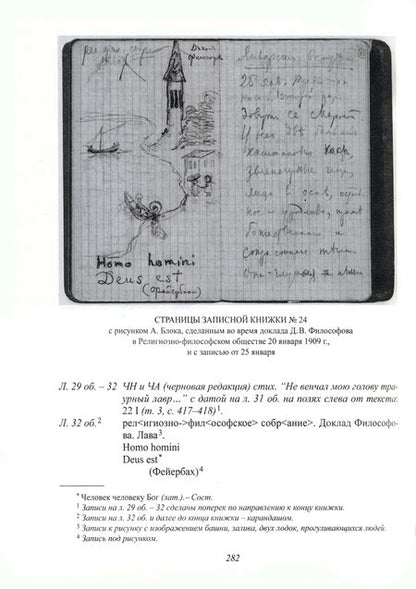 рел фил. собр.
Доклад
Философ
25 янв.
Зовут ее Мартой
У нее две большие
каштановые косы,
зелено-черные
Homo homini
Deus est
(Фейербах)
СТРАНИЦЫ ЗАПИСНОЙ КНИЖКИ № 24
с рисунком А. Блока, сделанным во время доклада Д.В. Философова
в Религиозно-философском обществе 20 января 1909 г.,
и с записью от 25 января
Л. 29 об. – 32 ЧН и ЧА (черновая редакция) стих. “Не венчал мою голову тра-
урный лавр…” с датой на л. 31 об. на полях слева от текста:
22 I (т. 3, с. 417–418)¹.
Л. 32 об.² рел<игиозно->фил<ософское> собр<ание>. Доклад Философо-
ва. Лава³.
Homo homini
Deus est*
(Фейербах)⁴
* Человек человеку Бог (лат.).– Сост.
¹ Записи на л. 29 об. – 32 сделаны поперек по направлению к концу книжки.
² Записи на л. 32 об. и далее до конца книжки – карандашом.
³ Записи к рисунку с изображением башни, залива, двух лодок, прогуливающихся людей.
⁴ Запись под рисунком.
282